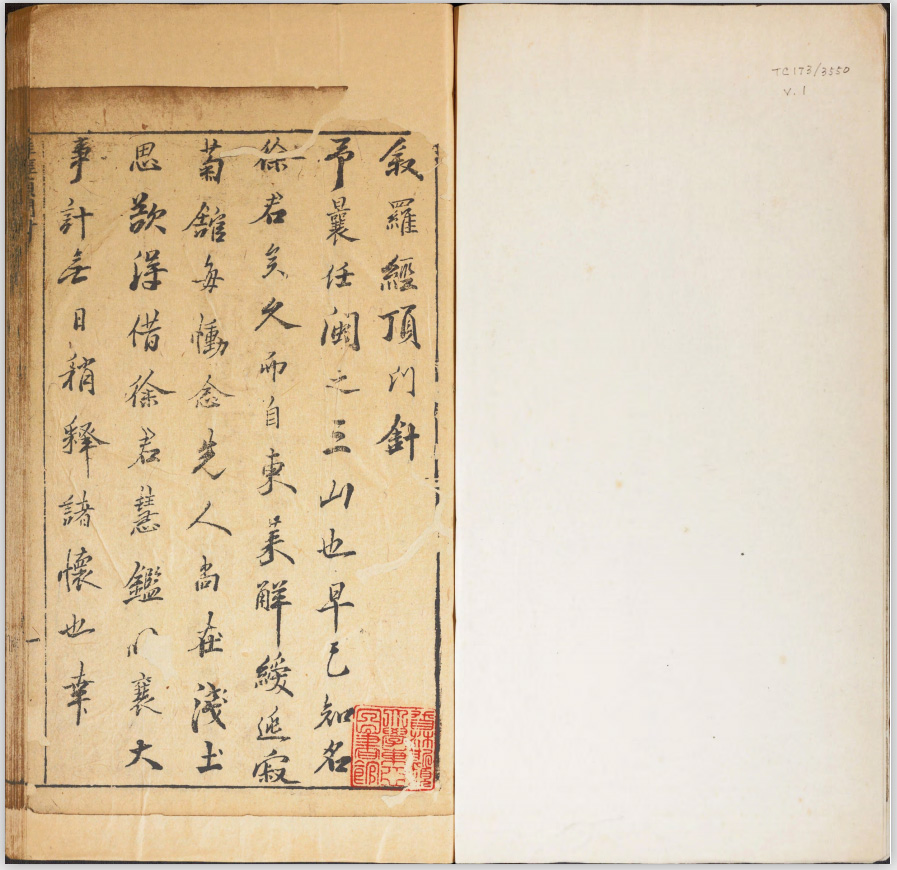 TC173/3550
v.1
叙羅經頂門針
予曩任閩之三山也早已知名
徐君矣久而自東萊解綬迯寂
菊舘每慟念先人尚在淺土
思欲得借徐君慧鑑以襄大
事計無日稍释諸懷也幸